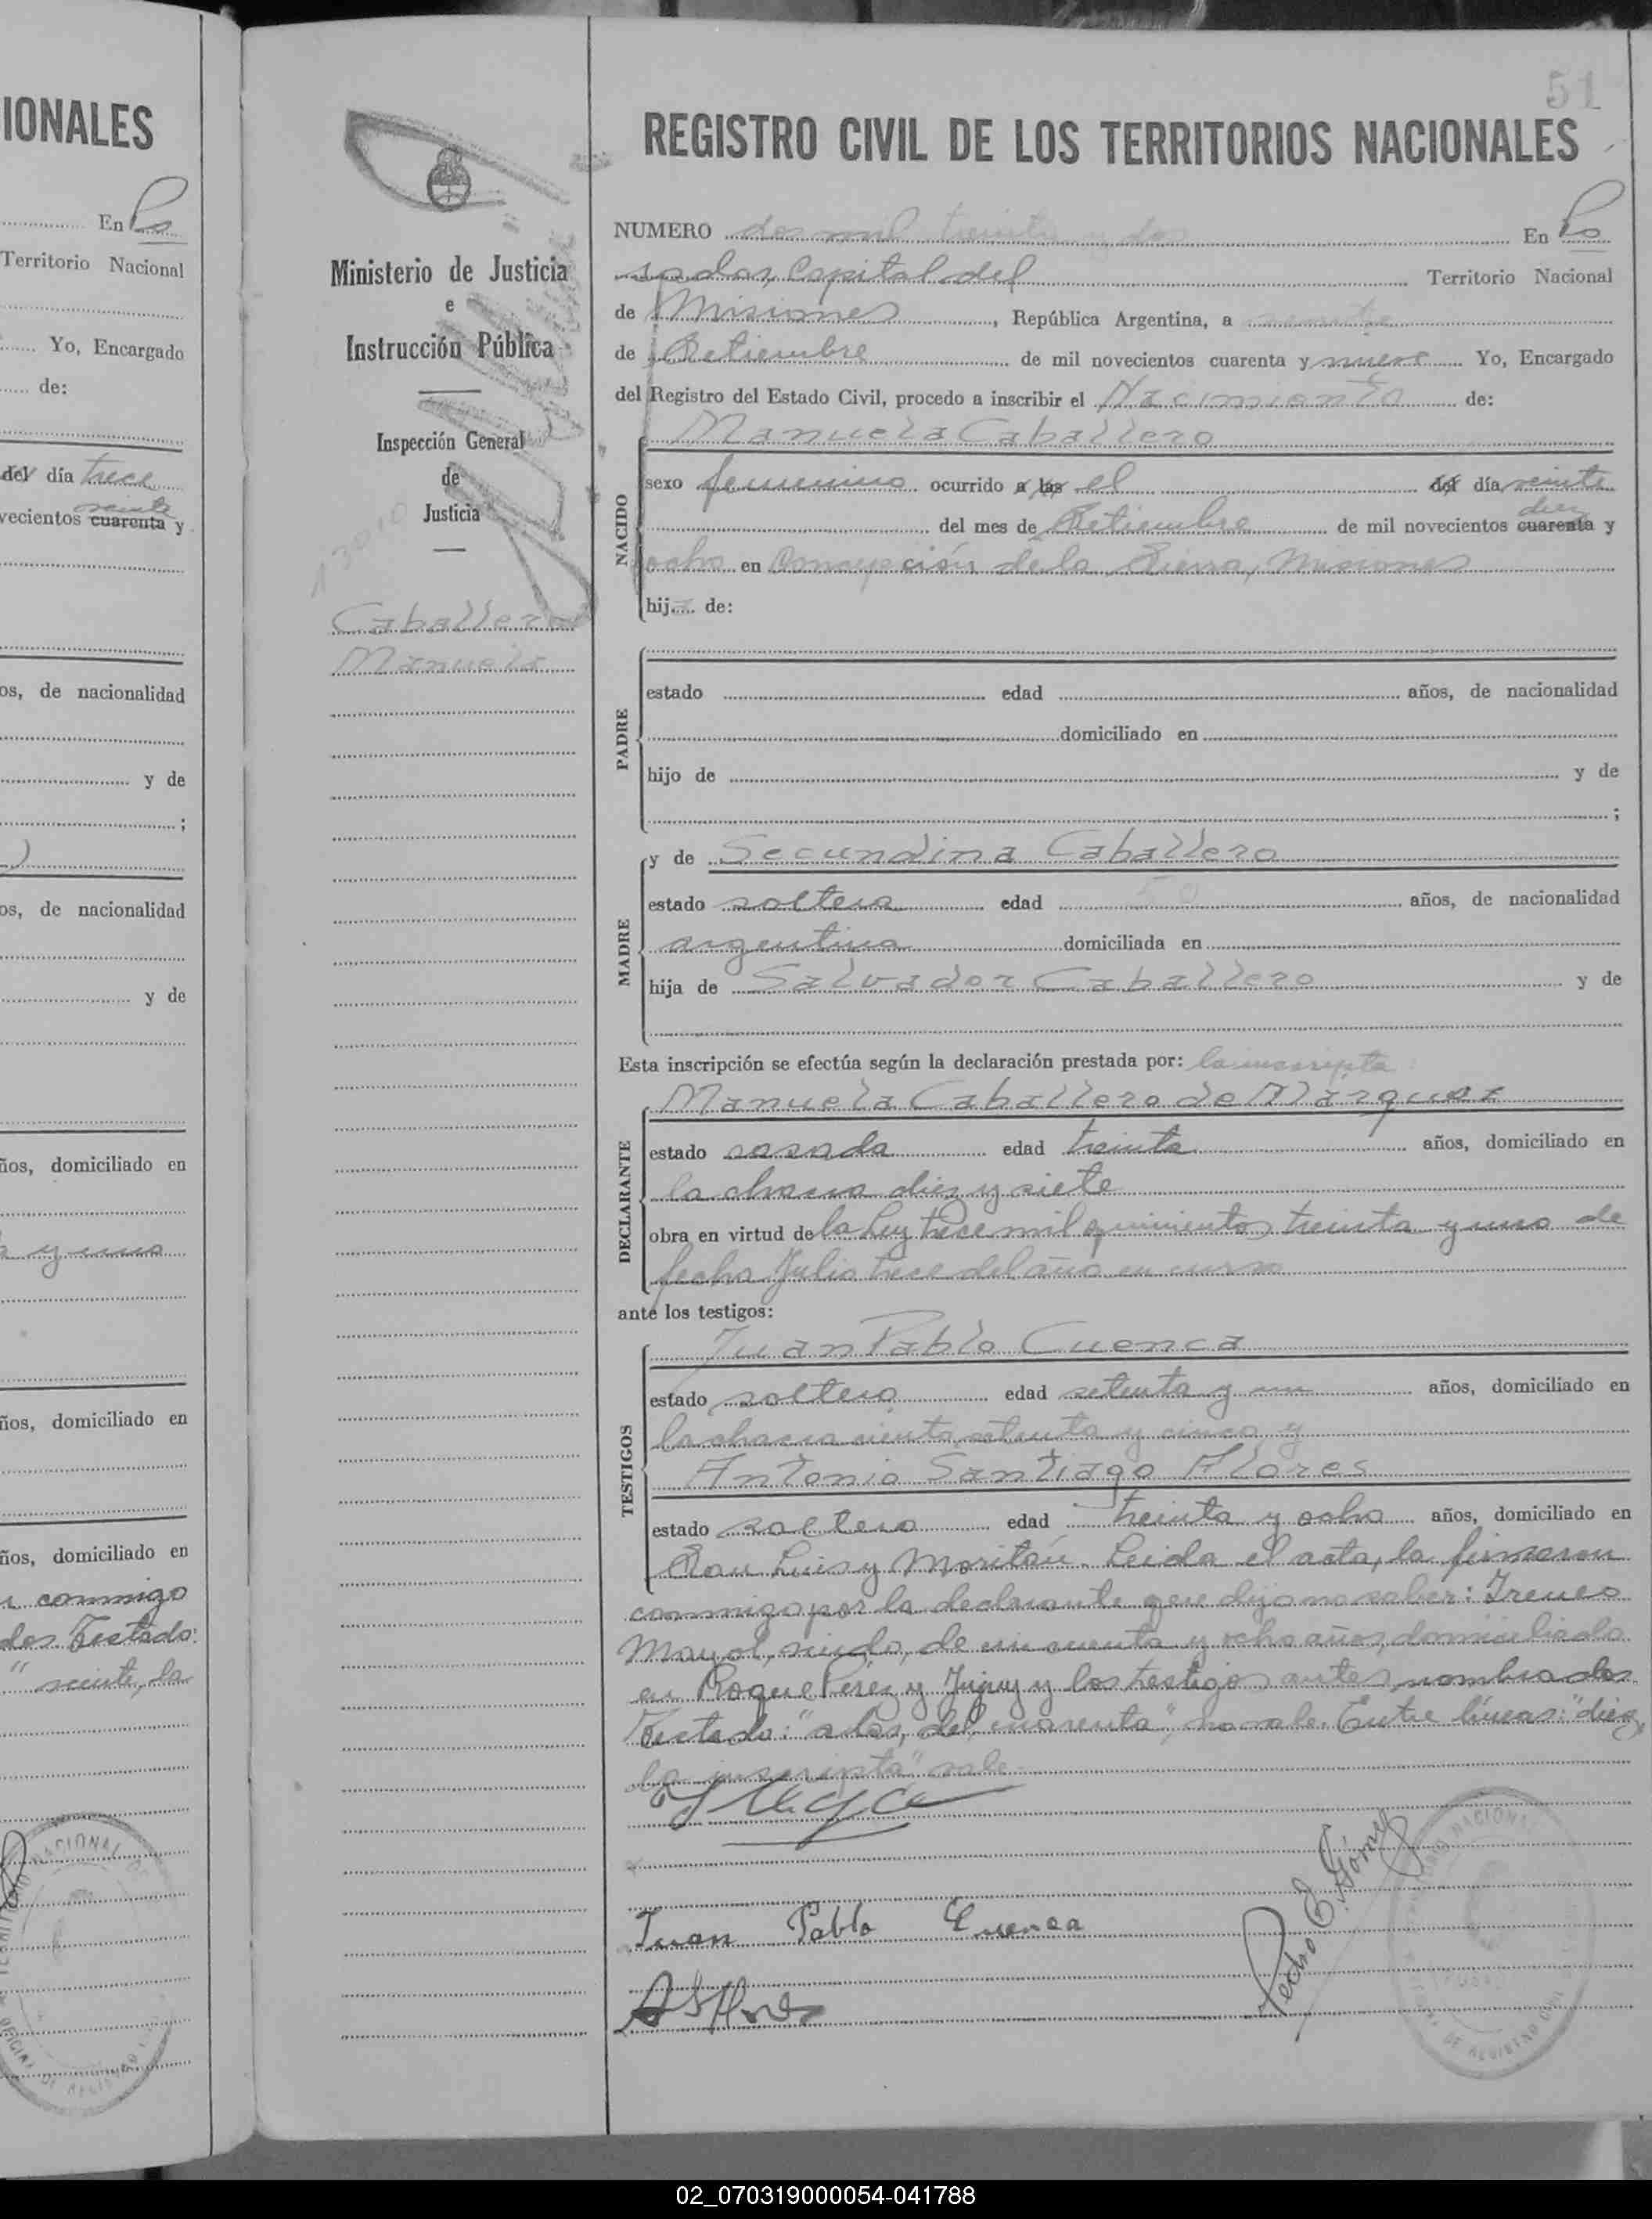 IONALES
En Po
Territorio Nacional
Yo, Encargado
de:
del día trece
veinte
vecientos cuarenta y
os, de nacionalidad
y de
;
os, de nacionalidad
y de
ños, domiciliado en
y uno
ños, domiciliado en
ños, domiciliado en
conmigo
dos Testado:
" veinte, la
Ministerio de Justicia
e
Instrucción Pública
Inspección General
de
Justicia
Caballero
Manuela
51
REGISTRO CIVIL DE LOS TERRITORIOS NACIONALES
NUMERO dos mil treinta y dos En Po
sadas, Capital del Territorio Nacional
de Misiones, República Argentina, a veinte
de Setiembre de mil novecientos cuarenta y nueve Yo, Encargado
del Registro del Estado Civil, procedo a inscribir el Nacimiento de:
Manuela Caballero
NACIDO
sexo femenino ocurrido a las el del día veinte
diez
del mes de Setiembre de mil novecientos cuarenta y
ocho en Concepción de la Sierra, Misiones
hija de:
PADRE
estado edad años, de nacionalidad
domiciliado en
hijo de y de
;
MADRE
y de Secundina Caballero
estado soltera edad 50 años, de nacionalidad
argentina domiciliada en
hija de Salvador Caballero y de
Esta inscripción se efectúa según la declaración prestada por: la inscripta
DECLARANTE
Manuela Caballero de Marquez
estado casada edad treinta años, domiciliado en
la chacra diez y siete
obra en virtud de la Ley trece mil quinientos treinta y uno de
fecha Julio trece del año en curso
ante los testigos:
TESTIGOS
Juan Pablo Cuenca
estado soltero edad setenta y un años, domiciliado en
la chacra ciento setenta y cinco y
Antonio Santiago Flores
estado soltero edad treinta y ocho años, domiciliado en
San Luis y Moritán. Leida el acta, la firmaron
conmigo por la declarante que dijo no saber: Ireneo
Mayol, viudo, de cincuenta y ocho años, domiciliado
en Roque Pérez y Jujuy y los testigos antes nombrados
Testado: "a las, del, cuarenta", no vale. Entre líneas: "diez,
la inscripta" vale.
Juan Pablo Cuenca
Pedro E. Gómez
A S Flores
02_070319000054-041788